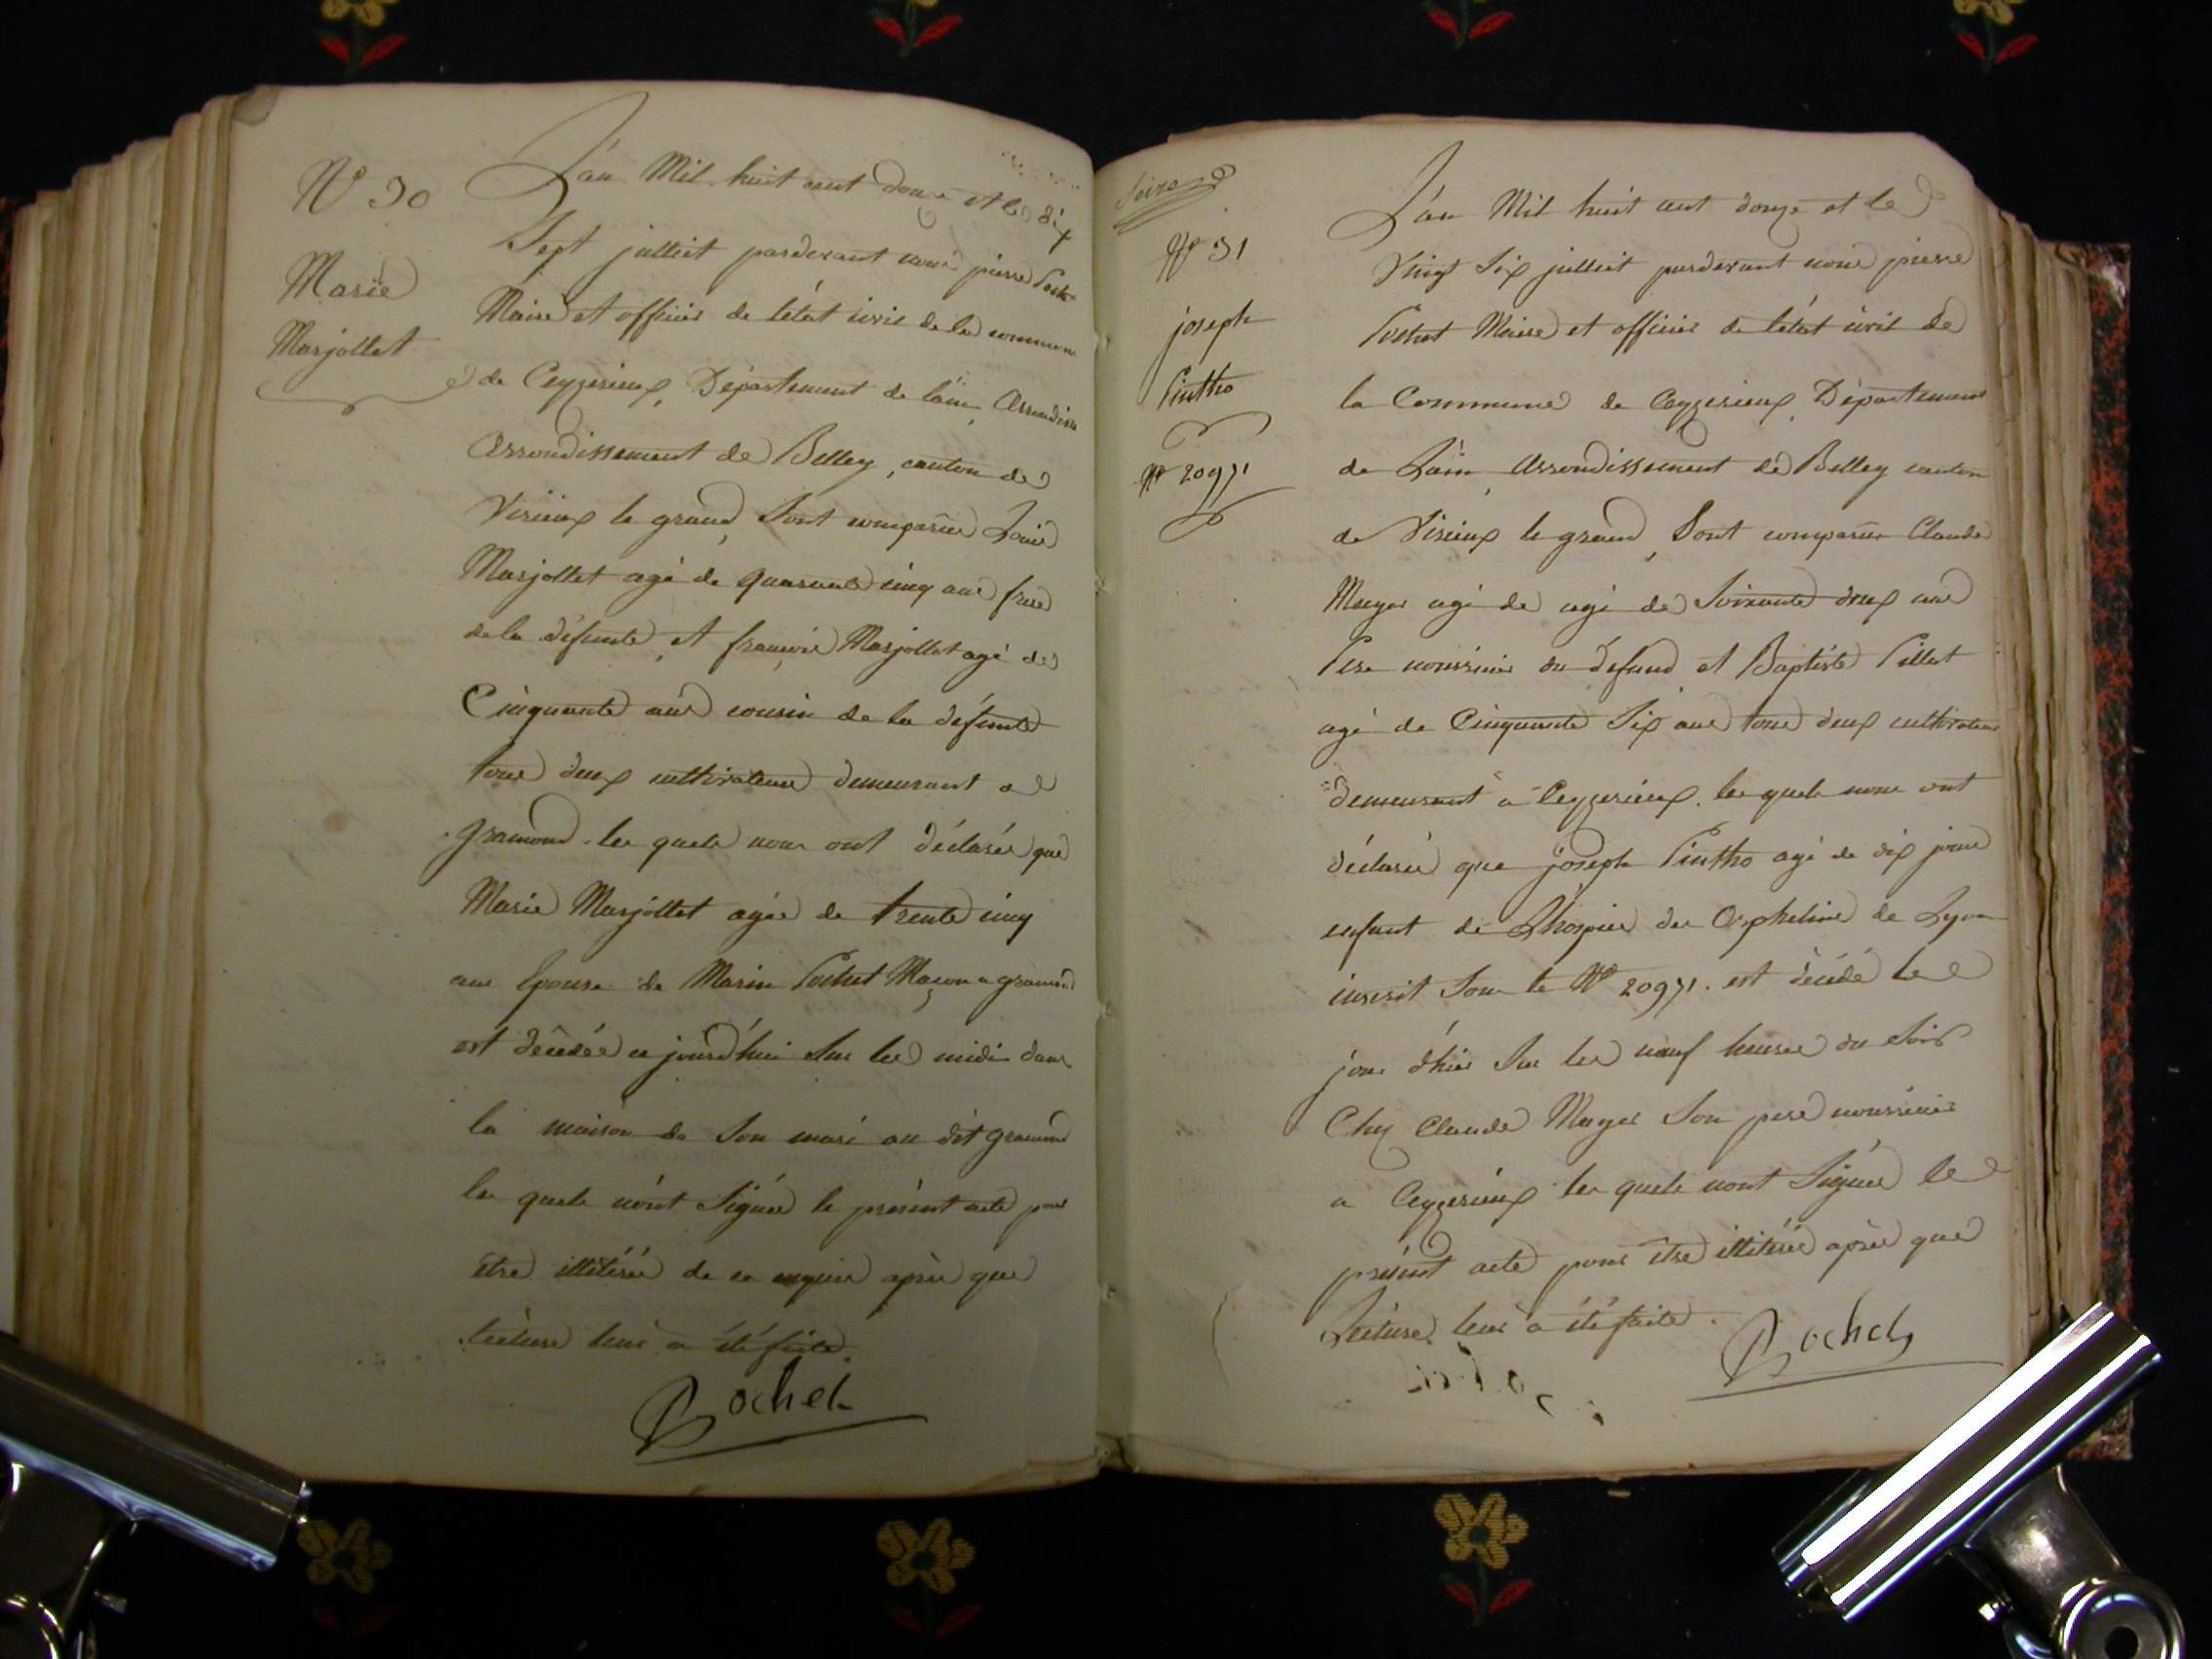 N° 30
Marie
Marjollet
L'an Mil huit cent douze et le dix
Sept julliet pardevant nous pierre Pochet
Maire et officier de l'état civil de la commune
de Ceyzerieux, Département de l'ain, Arrondisse
Arrondissement de Belley, canton de
Virieux le grand, Sont comparus Louis
Marjollet agé de quarante cinq ans frere
de la défunte, et françois Marjollet agé de
Cinquante ans cousin de la défunte
tous deux cultivateurs demeurant a
gramond. les quels nous ont déclarés que
Marie Marjollet agée de trente cinq
ans Epouse de Marin Pochet Maçon a gramond
est décedée ce jourd'hui Sur les midi dans
la maison de Son mari au dit gramond
les quels n'ont Signés le présent acte pour
être illitérés de ce requis après que
lecture leur a été faite.
Pochet
N° 31
joseph
Pintho
N° 20971
L'an Mil huit cent douze et le
Vingt Six julliet pardevant nous pierre
Pochet Maire et officier de l'état civil de
la Commune de Ceyzerieux, Département
de L'ain, Arrondissement de Belley canton
de Virieux le grand, Sont comparus Claude
Muger agé de agé de Soixante deux ans
Pere nourricier du defund et Baptiste Pillat
agé de Cinquante Six ans tous deux cultivateurs
demeurant a Ceyzerieux. les quels nous ont
déclarés que joseph Pintho agé de dix jours
enfant de L'hospice des Orphelins de Lyon
inscrit Sous le N° 20971. est décédé le
jour d'hier Sur les neuf heures du Soir
Chez Claude Muger Son pere nourricier
a Ceyzerieux les quels n'ont Signés le
présent acte pour être illitérés après que
Lecture leur a été faite.
Pochet